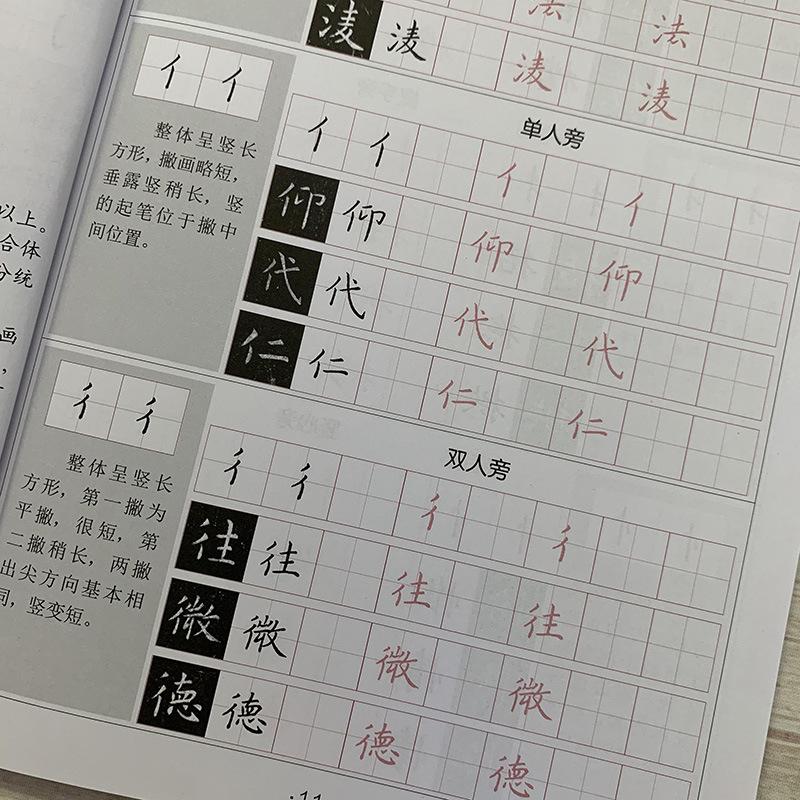 法 法
凌 凌 凌 凌
亻 亻
整体呈竖长
方形，撇画略短，
垂露竖稍长，竖
的起笔位于撇中
间位置。
单人旁
亻 亻 亻 亻
仰 仰 仰 仰
代 代 代 代
仁 仁 仁 仁
彳 彳
整体呈竖长
方形，第一撇为
平撇，很短，第
二撇稍长，两撇
出尖方向基本相
同，竖变短。
双人旁
彳 彳 彳 彳
往 往 往 往
微 微 微 微
德 德 德 德
以上。
合体
分统
画
·11